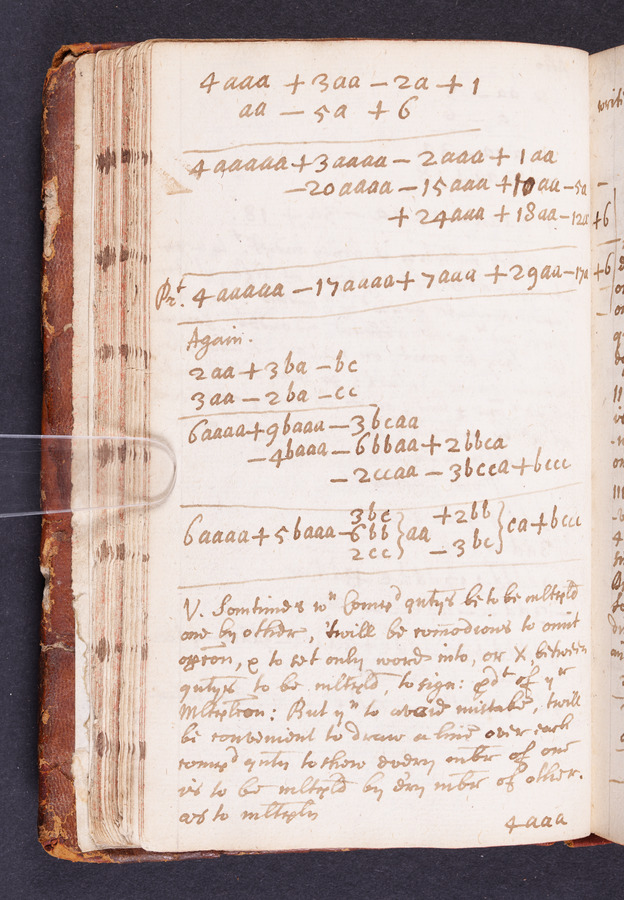 4aaa + 3aa − 2a + 1
aa − 5a + 6
4aaaaa + 3aaaa − 2aaa + 1aa
−20aaaa − 15aaa + 10aa − 5a
+ 24aaa + 18aa − 12a + 6
Prt. 4aaaaa − 17aaaa + 7aaa + 29aa − 17a + 6
Again.
2aa + 3ba − bc
3aa − 2ba − cc
6aaaa + 9baaa − 3bcaa
− 4baaa − 6bbaa + 2bbca
− 2ccaa − 3bcca + bccc
3bc +2bb
6aaaa + 5baaa − 6bb } aa } ca + bccc
2cc − 3bc
V. Somtimes wn Compd qntys be to be mltpld
one by other, 'twill be comodious to omit
opron, & to set only word into, or X, between
qntys to be mltpld, to sign: pdt of yr
Mltpltion: But yn to avoid mistake, twill
be convenient to draw a line over each
compd qnty to shew every mbr of one
is to be mltpld by ev'ry mbr of other.
as to mltply
4aaa
writi